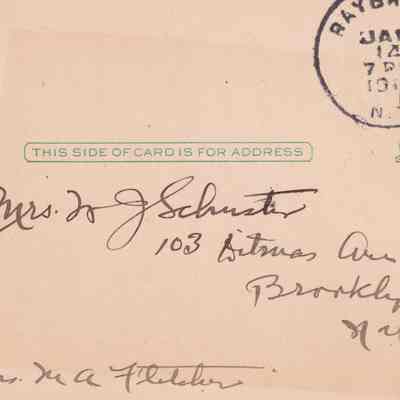 RAYBR
JAN
14
7 P
191
N.
THIS SIDE OF CARD IS FOR ADDRESS
Mrs. W J Schuster
103 Ditmas Ave
Brookly
N.Y
rs. M A Fletcher